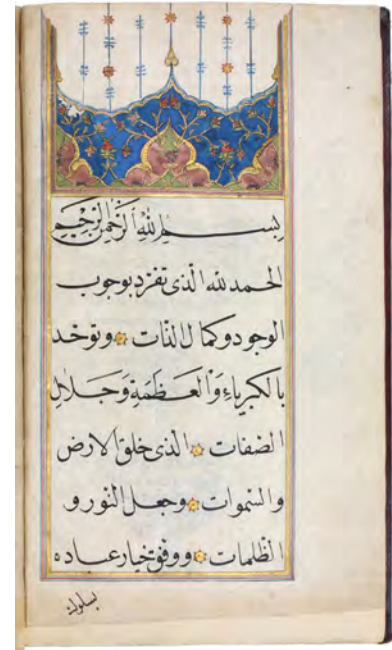 بِسْمِ اللّٰهِ الرَّحْمٰنِ الرَّحِيمِ
الحمد لله الذى تفرّد بوجوب
الوجود وكمال الذات وتوحّد
بالكبرياءِ وَالعظمَةِ وَجلالِ
الصّفات الذى خلق الارض
والسّموات وجعل النّور و
الظلمات ووفق خيار عباده
بسلوك